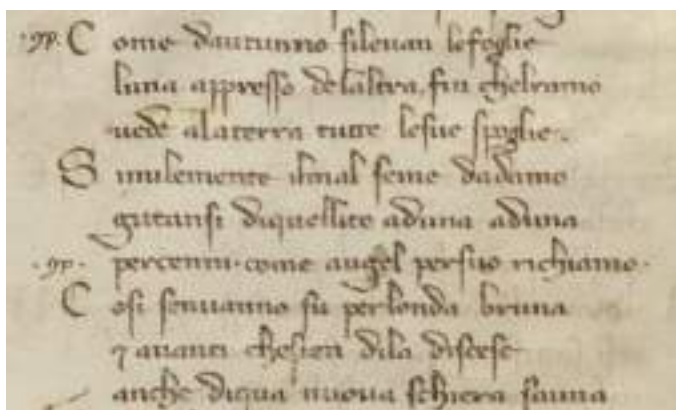 ·gp· Come dautunno silevan lefoglie
luna appresso delaltra, fin chelramo
uede alaterra tutte lesue spoglie.
Similemente ilmal seme dadamo
gittansi diquellito aduna aduna
·gp· percenni·come augel persuo richiamo·
Cosi senuanno su perlonda bruna
⁊ auanti chesien dila discese
anche diqua nuoua schiera sauna